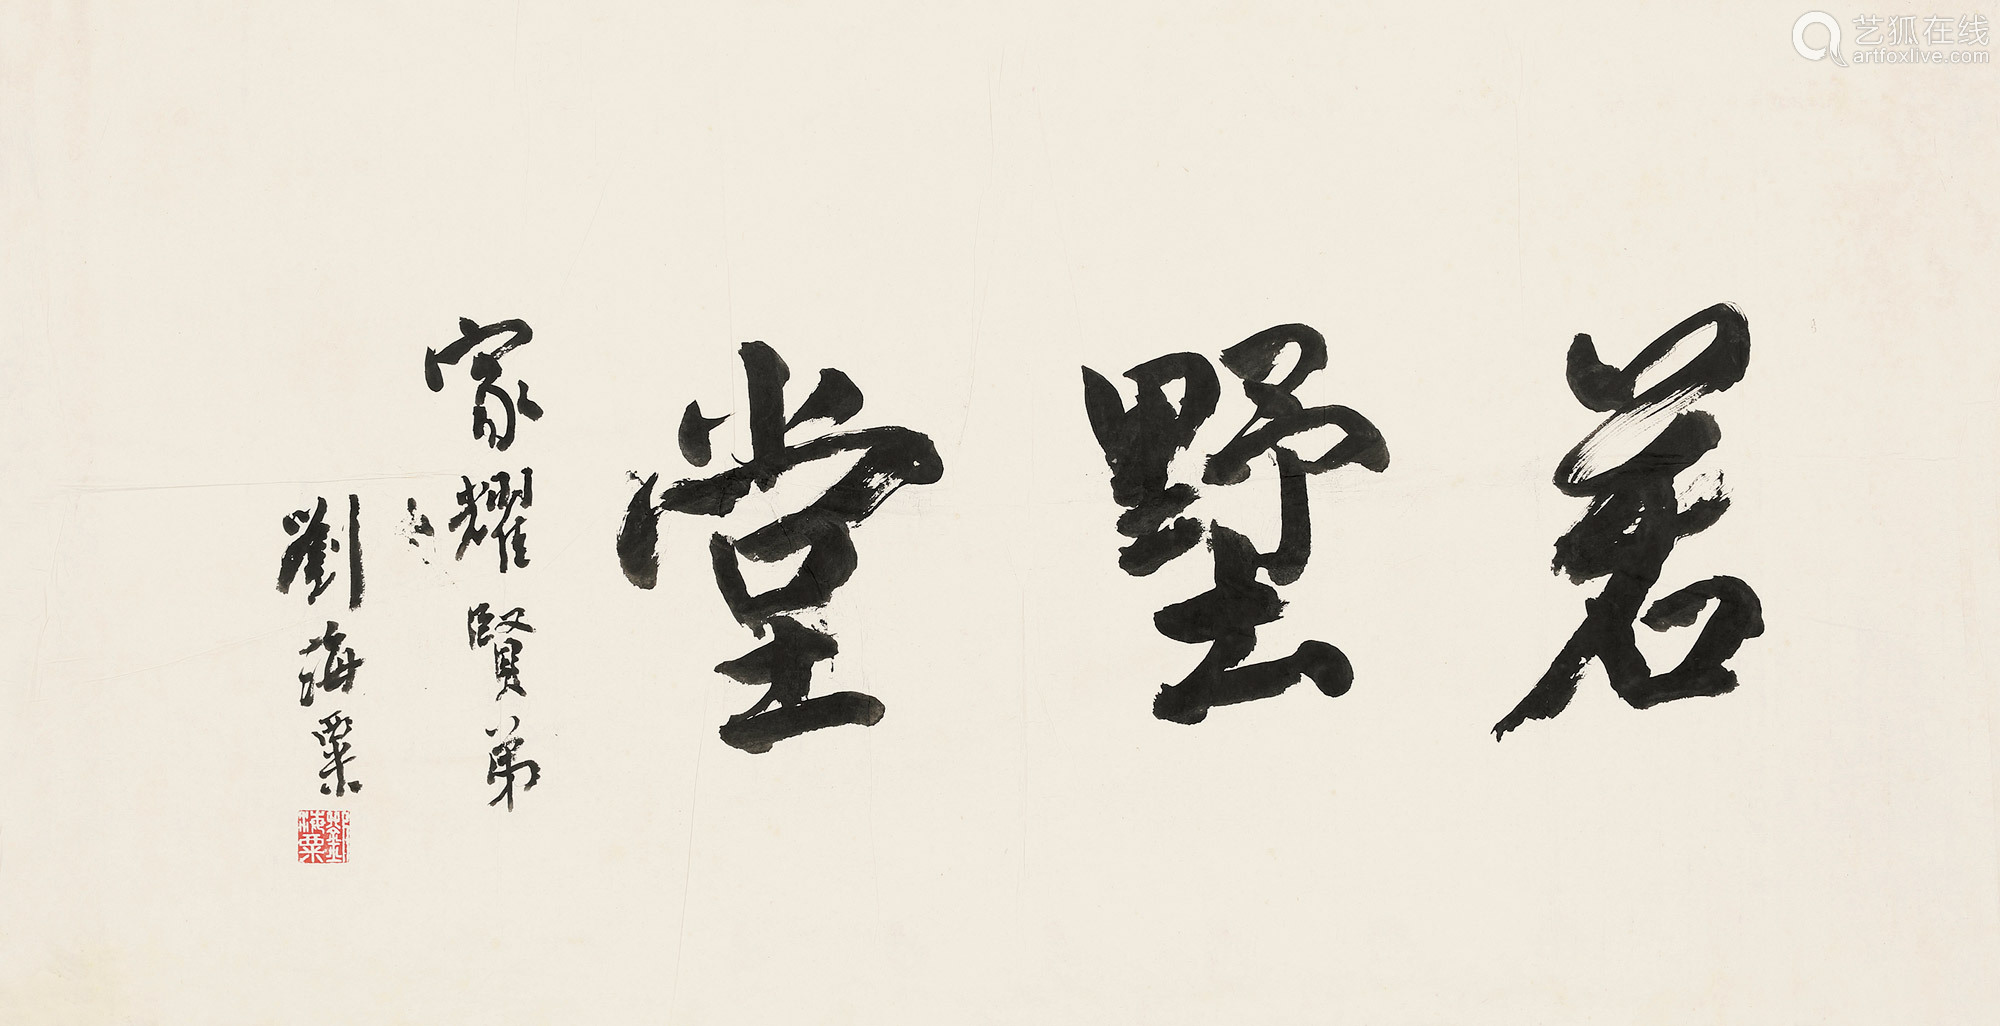 若墅堂
家耀賢弟
劉海粟
劉海粟
艺狐在线
artfoxlive.com